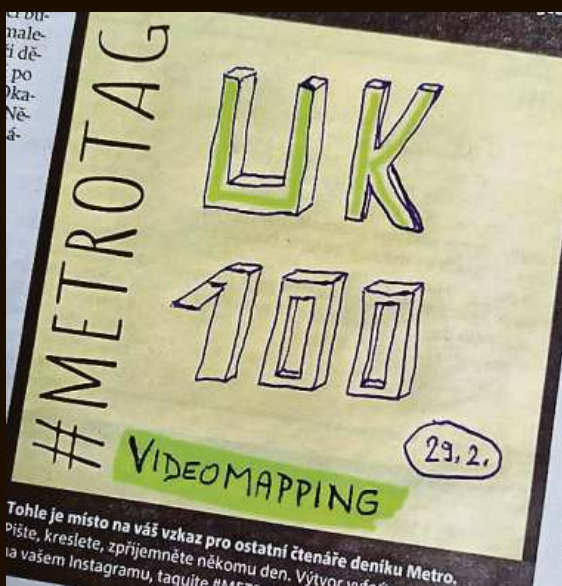 male-
či dě-
po
Oka-
Ně-
á-
#METROTAG
UK
100
29.2.
VIDEOMAPPING
Tohle je místo na váš vzkaz pro ostatní čtenáře deníku Metro.
Pište, kreslete, zpříjemněte někomu den. Výtvor
na vašem Instagramu, tagujte